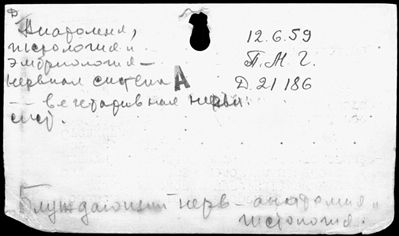 Ф
Анатомия,
гистология и
эмбриология –
нервная система А
– вегетативная нервн.
сист.
12.6.59
П.М.Г.
Д.21186
Блуждающий нерв – анатомия и
гистология.